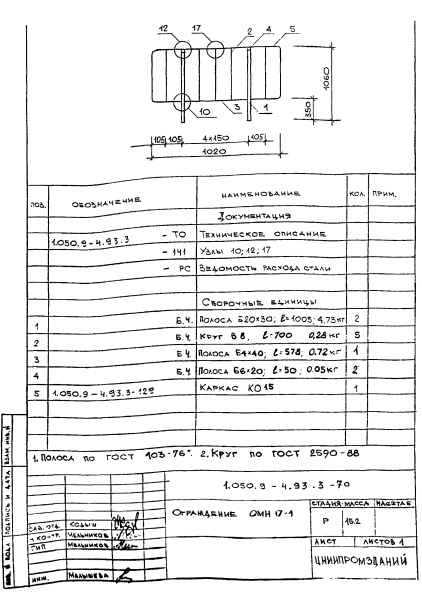 12 17 2 4 5
10 3 1
350
1060
105 105 4×150 105
1020
ПОЗ. ОБОЗНАЧЕНИЕ НАИМЕНОВАНИЕ КОЛ. ПРИМ.
ДОКУМЕНТАЦИЯ
1.050.9-4.93.3 - ТО ТЕХНИЧЕСКОЕ ОПИСАНИЕ
- 141 УЗЛЫ 10; 12; 17
- РС ВЕДОМОСТЬ РАСХОДА СТАЛИ
СБОРОЧНЫЕ ЕДИНИЦЫ
1 Б.Ч. ПОЛОСА Б20×30; ℓ=1005; 4,73кг 2
2 Б.Ч. КРУГ В8, ℓ=700 0,28 кг 5
3 Б.Ч. ПОЛОСА Б4×40; ℓ=578; 0.72кг 1
4 Б.Ч. ПОЛОСА Б6×20; ℓ=50; 0.05кг 2
5 1.050.9-4.93.3-129 КАРКАС КО15 1
1. ПОЛОСА ПО ГОСТ 103-76*. 2. КРУГ ПО ГОСТ 2590-88
1.050.9-4.93.3-70
ОГРАЖДЕНИЕ ОМН 17-1
СТАДИЯ МАССА МАСШТАБ
Р 15.2
ЛИСТ ЛИСТОВ 1
ЦНИИПРОМЗДАНИЙ
ЗАВ. ОТД.
Н. КОНТР. МЕЛЬНИКОВ
ГИП МЕЛЬНИКОВ
ИНЖ. МАЛЫШЕВА
ПОДПИСЬ И ДАТА ВЗАМ. ИНВ. №